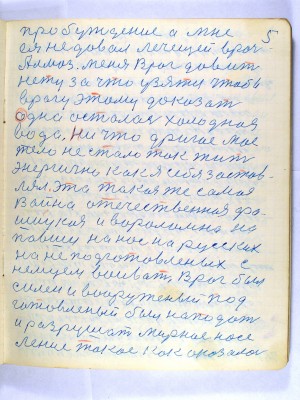 5
пробуждение а мне
ея не довал лечещей врач
Алмоз. меня Враг довит
нету за что узяти чтобы
врагу этому доказат
одна осталоя холодная
вода. Ни что другое мое
тело не стало так жит
энергично как я себя застов
лял. Эта такая же самая
Вайна отечественная фа-
шиская и вараломна на
павшы на нос на русских
на не подготовленых с
немцем воиват, Враг был
силен и вооруженый под
готовленый был нападат
и разрушат мирное насе
ление такое как оказалос